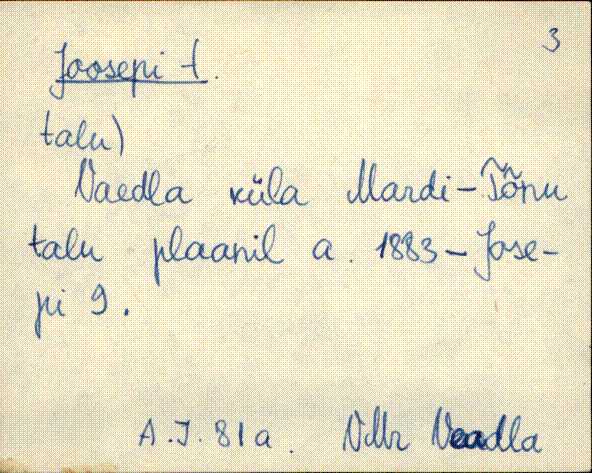 3
Joosepi t.
talu)
Vaedla küla Mardi-Tõnu
talu plaanil a. 1883 - Jose-
pi 9.
A.J. 81a.